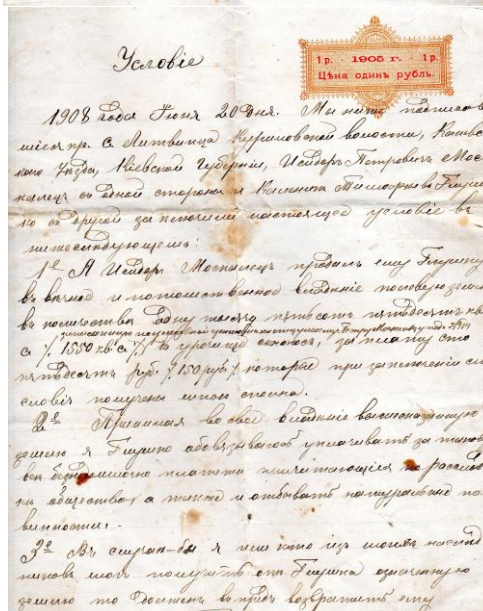 Условіе
1 р. 1905 г. 1 р.
Цѣна одинъ рубль.
1908 года Іюня 20 дня. Мы ниже подписав
шіеся кр. с. Литвинца Куриловской волости, Каневс
каго Уѣзда, Кіевской Губерніи, Исидоръ Петровичъ Мос
калецъ съ одной стороны и Калиникъ Тимофѣевъ Глушко
съ другой заключили настоящее условіе въ
нижеслѣдующемъ:
1е Я Исидоръ Москалецъ продалъ ему Глушку
въ вѣчное и потомственное владѣніе полевую землю
въ количествѣ одну тысячу пятьсотъ пятьдесятъ кв
с. /1550 кв. с./ въ урочищѣ за плату сто
пятьдесятъ руб. /150 руб./ которые при заключеніи сего
словія получены мною сполна.
2е Принимая во свое владѣніе вышесказанную
землю я Глушко обовязываюсь уплачивать за таковую
всѣ платежи причитающіеся по расклад
ки общества, а также и отбывать натуральные по
винности.
3е Въ случаѣ бы я или кто изъ моихъ наслѣд
никовъ могъ получить отъ Глушка означенную
землю то долженъ възвратить ему